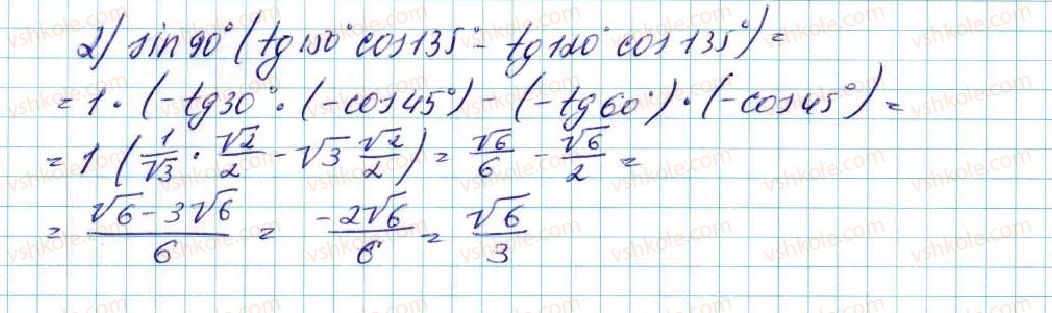 2) sin 90° (tg 150° cos 135° - tg 120° cos 135°) =
= 1 · (-tg 30° · (-cos 45°) - (-tg 60°) · (-cos 45°) =
= 1 (1/√3 · √2/2 - √3 √2/2) = √6/6 - √6/2 =
= (√6 - 3√6)/6 = -2√6/6 = √6/3
vshkole.com